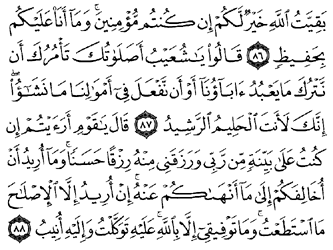 بَقِيَّتُ ٱللَّهِ خَيْرٌ لَّكُمْ إِن كُنتُم مُّؤْمِنِينَ ۚ وَمَآ أَنَا۠ عَلَيْكُم
بِحَفِيظٍ ٨٦ قَالُوا۟ يَٰشُعَيْبُ أَصَلَوٰتُكَ تَأْمُرُكَ أَن
نَّتْرُكَ مَا يَعْبُدُ ءَابَآؤُنَآ أَوْ أَن نَّفْعَلَ فِىٓ أَمْوَٰلِنَا مَا نَشَٰٓؤُا۟ ۖ
إِنَّكَ لَأَنتَ ٱلْحَلِيمُ ٱلرَّشِيدُ ٨٧ قَالَ يَٰقَوْمِ أَرَءَيْتُمْ إِن
كُنتُ عَلَىٰ بَيِّنَةٍ مِّن رَّبِّى وَرَزَقَنِى مِنْهُ رِزْقًا حَسَنًا ۚ وَمَآ أُرِيدُ أَنْ
أُخَالِفَكُمْ إِلَىٰ مَآ أَنْهَىٰكُمْ عَنْهُ ۚ إِنْ أُرِيدُ إِلَّا ٱلْإِصْلَٰحَ
مَا ٱسْتَطَعْتُ ۚ وَمَا تَوْفِيقِىٓ إِلَّا بِٱللَّهِ ۚ عَلَيْهِ تَوَكَّلْتُ وَإِلَيْهِ أُنِيبُ ٨٨